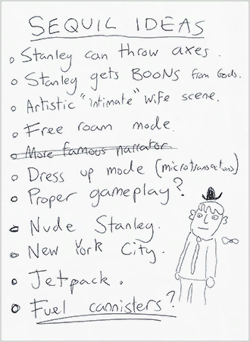 SEQUIL IDEAS
Stanley can throw axes.
Stanley gets BOONS from Gods.
Artistic "intimate" wife scene.
Free roam mode.
More famous narrator.
Dress up mode (microtransactions)
Proper gameplay?
Nude Stanley.
New York City.
Jetpack.
Fuel cannisters?